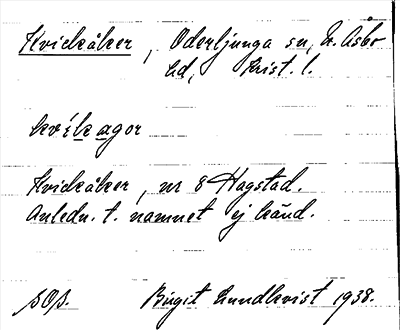 Kvickåker, Oderljunga sn, N. Åsbo
hd, Krist. l.
kvíkagor
Kvickåker, nr 8 Hagstad.
Anledn. t. namnet ej känd.
Birgit Lundkvist 1938.